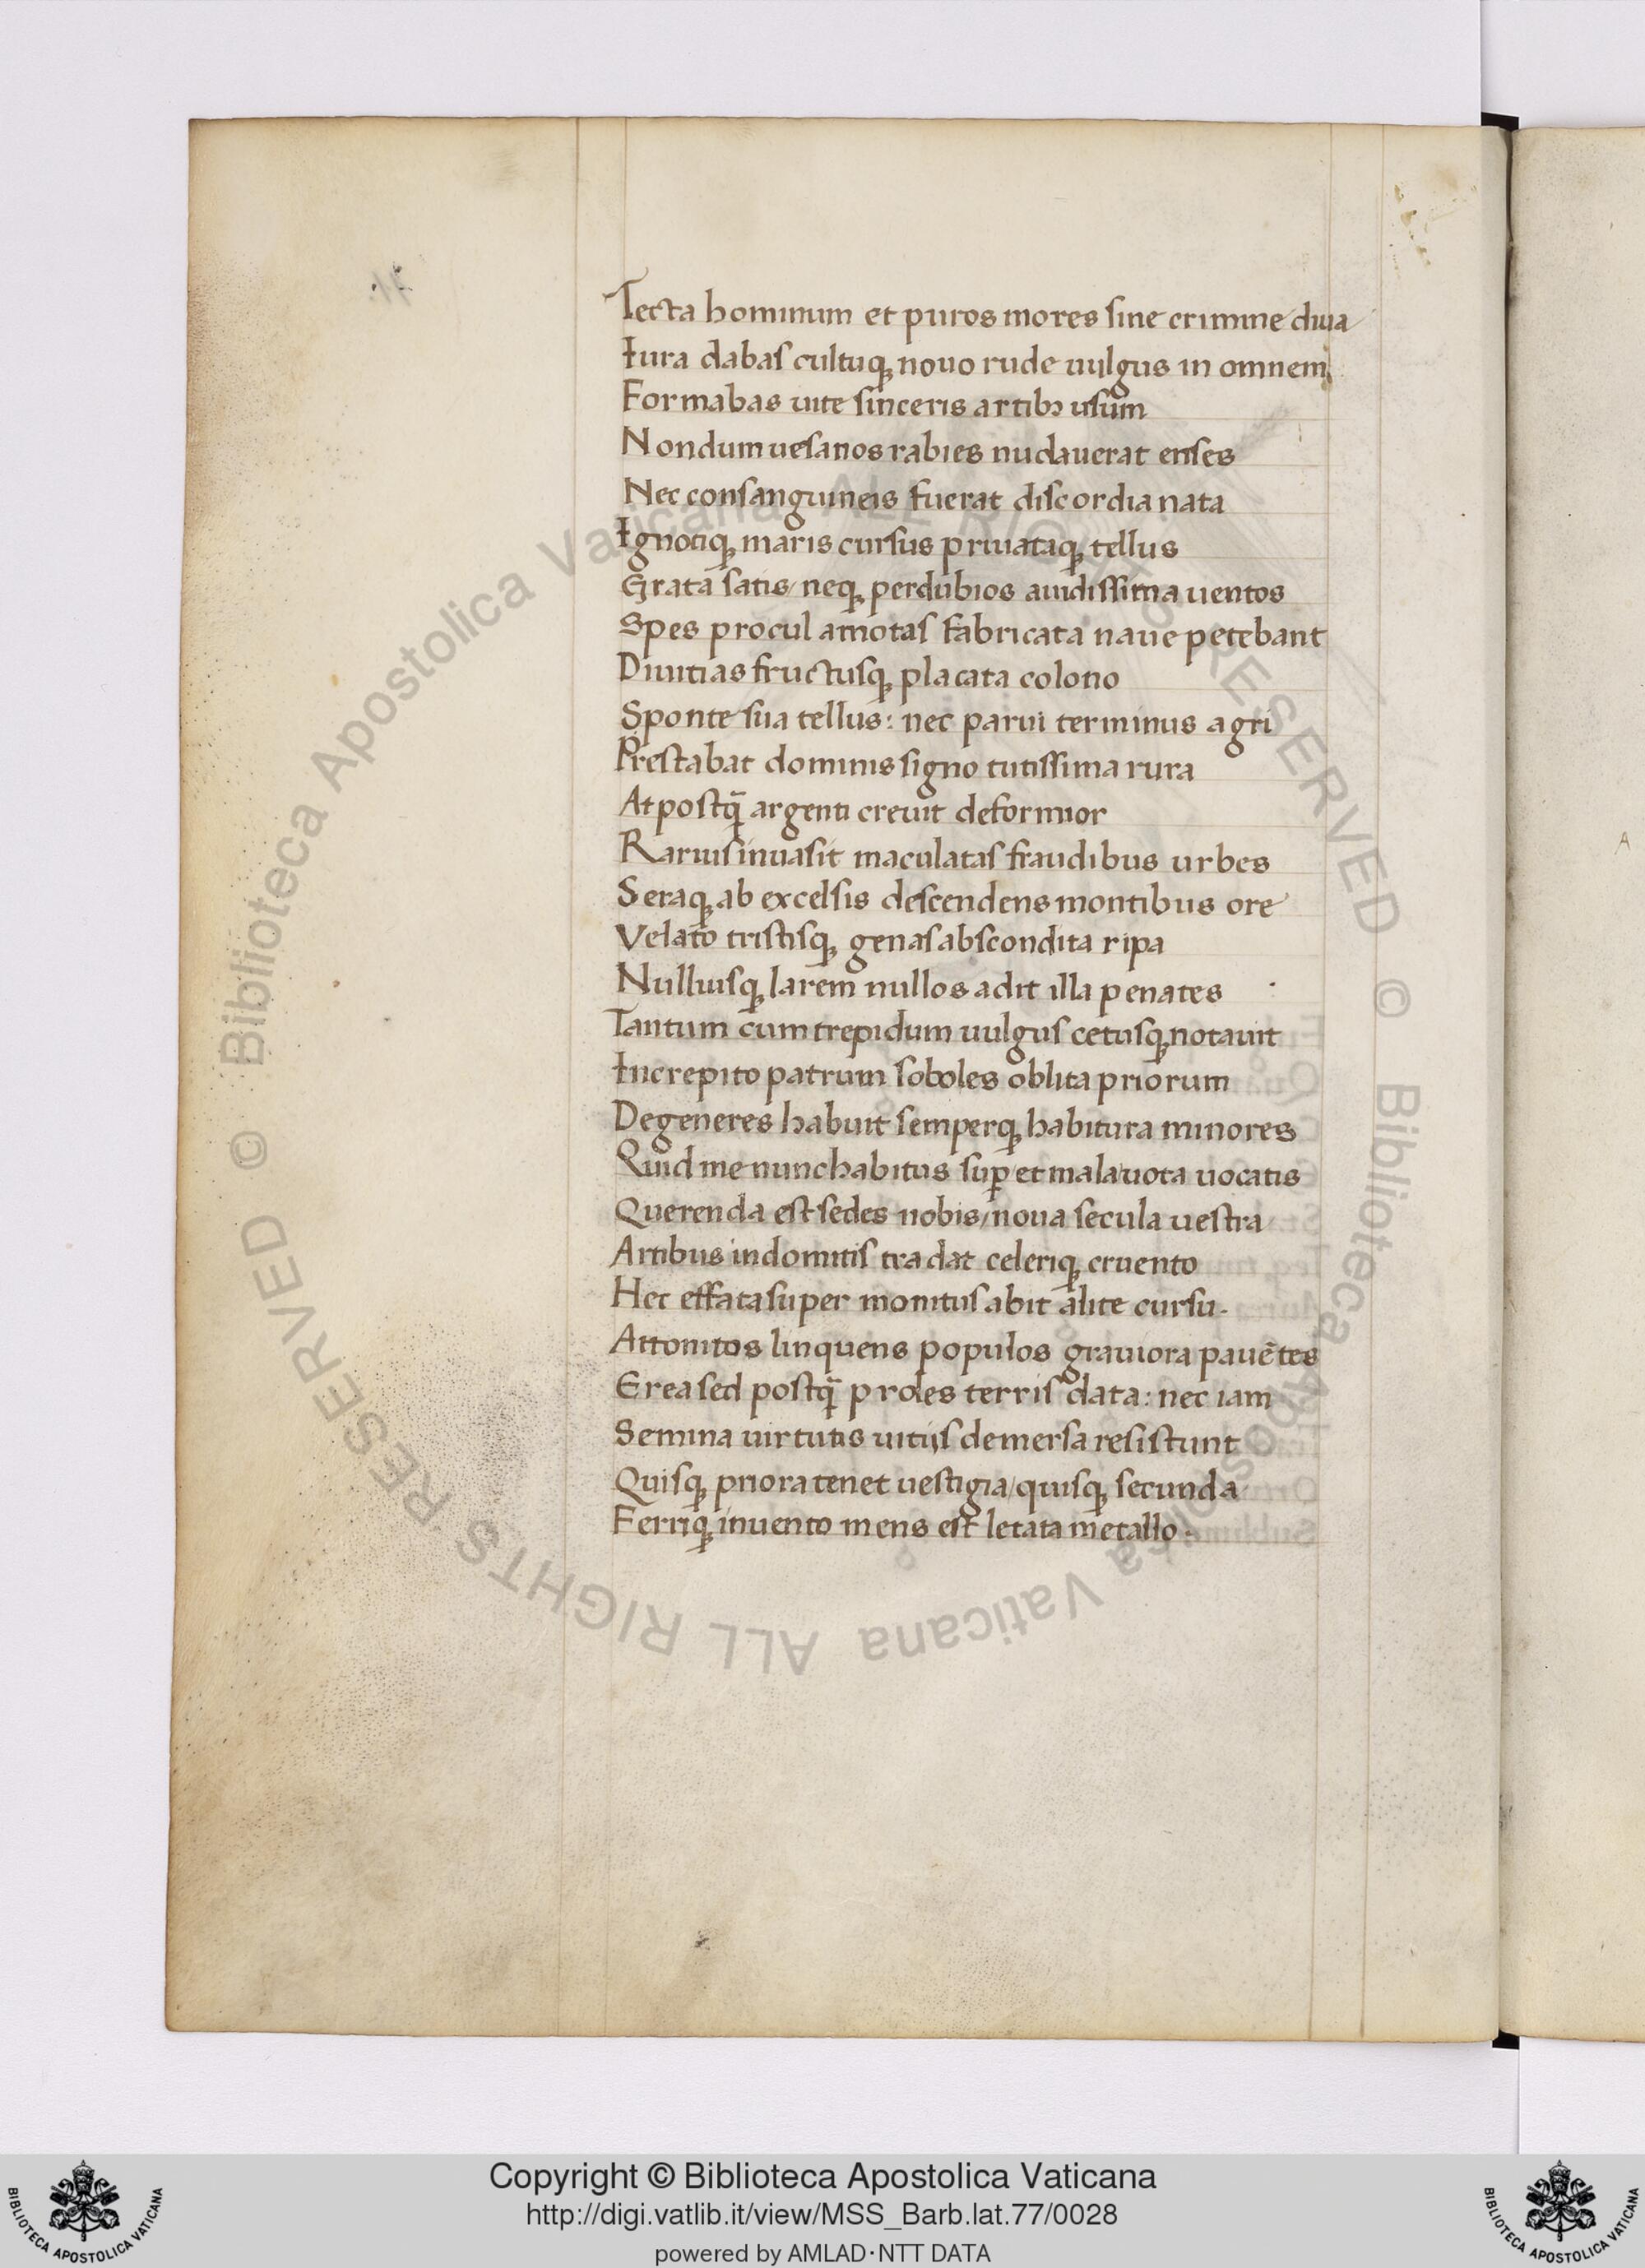 Tecta hominum et puros mores sine crimine diua
Iura dabas cultuqꝫ nouo rude uulgus in omnem
Formabas uite sinceris artibꝫ usum
Nondum uesanos rabies nudauerat enses
Nec consanguineis fuerat discordia nata
Ignotiqꝫ maris cursus priuataqꝫ tellus
Grata satis/ neqꝫ per dubios auidissima uentos
Spes procul amotas fabricata naue petebant
Diuitias fructusqꝫ placata colono
Sponte sua tellus: nec parui terminus agri
Prestabat dominis signo tutissima rura
At postq̄ argenti creuit deformior
Rarius inuasit maculatas fraudibus urbes
Seraqꝫ ab excelsis descendens montibus ore
Velato tristisqꝫ genas abscondita ripa
Nulliusqꝫ larem nullos adit illa penates
Tantum cum trepidum uulgus cetusqꝫ notauit
Increpito patrum soboles oblita priorum
Degeneres habuit semperqꝫ habitura minores
Quid me nunc habitus sup̄ et mala uota uocatis
Querenda est sedes nobis/ noua secula uestra
Artibus indomitis tradat celeriqꝫ cruento
Hec effata super monitus abit alite cursu.
Attonitos linquens populos grauiora pauētes
Erea sed postq̄ proles terris data: nec iam
Semina uirtutis uitijs demersa resistunt
Quisqꝫ priora tenet uestigia/ quisqꝫ secunda
Ferriqꝫ inuento mens est letata metallo.
Copyright © Biblioteca Apostolica Vaticana
http://digi.vatlib.it/view/MSS_Barb.lat.77/0028
powered by AMLAD·NTT DATA
BIBLIOTECA APOSTOLICA VATICANA
BIBLIOTECA APOSTOLICA VATICANA
© Biblioteca Apostolica Vaticana ALL RIGHTS RESERVED © Biblioteca Apostolica Vaticana ALL RIGHTS RESERVED